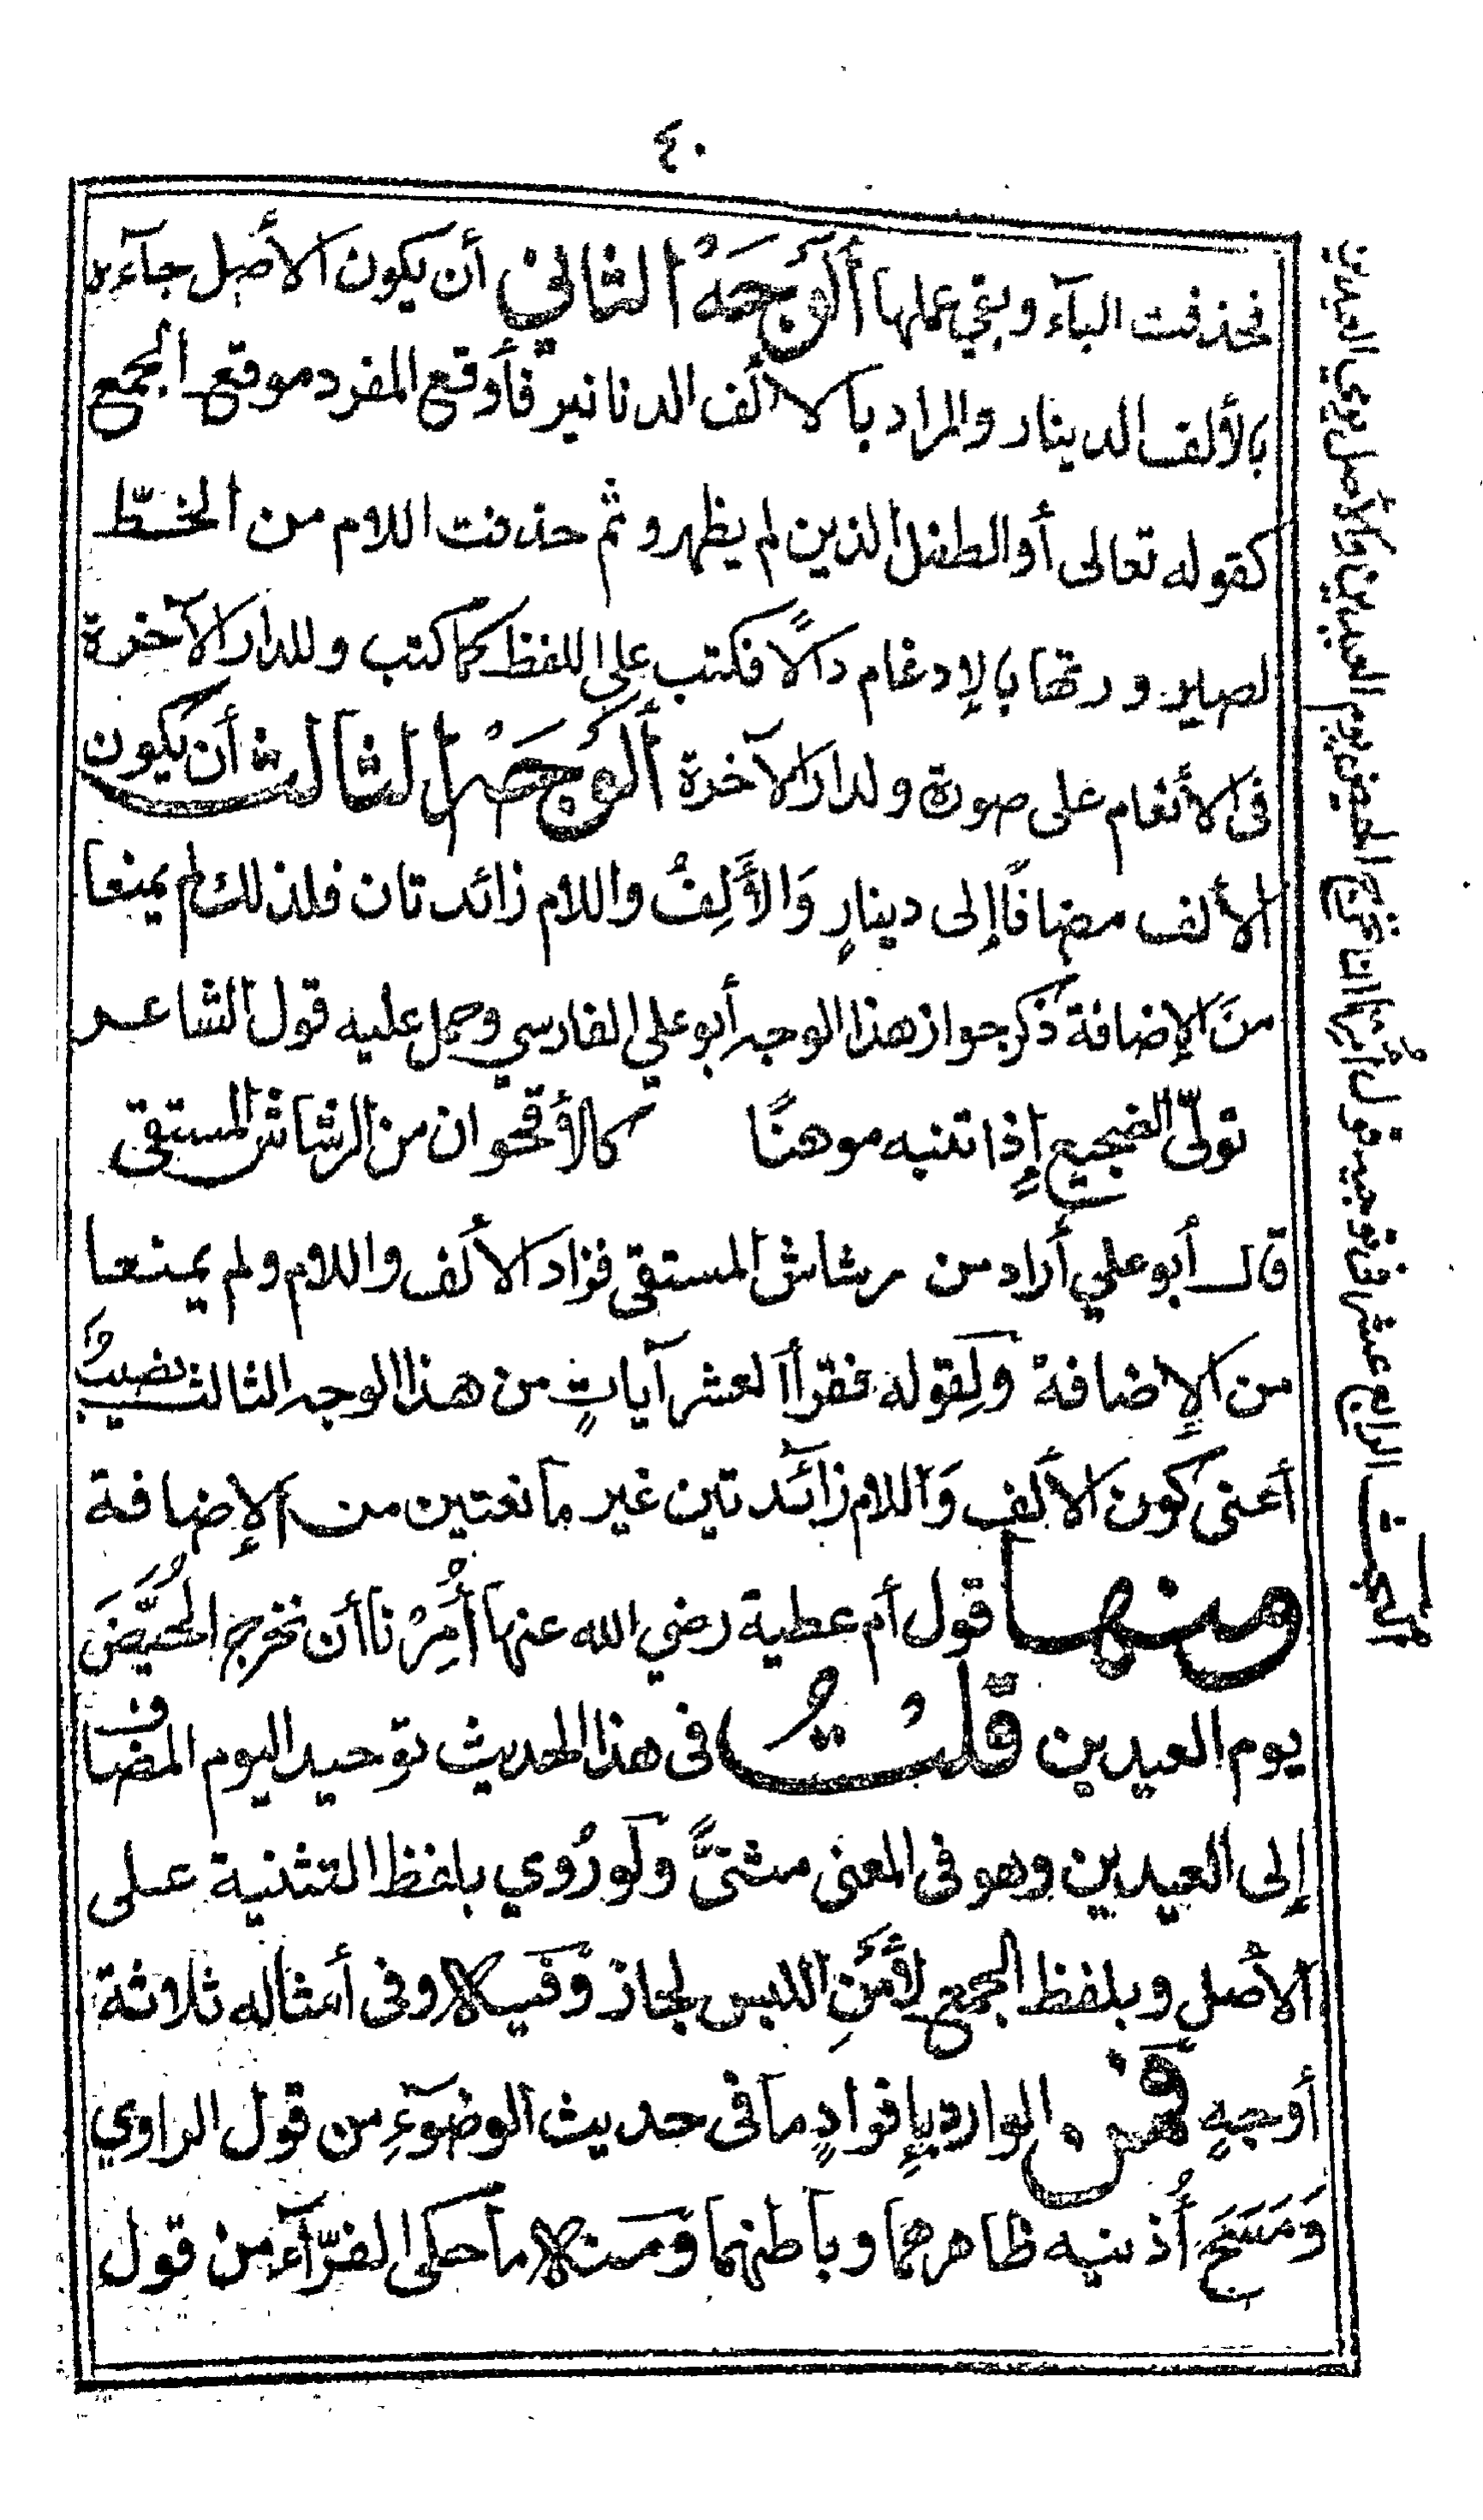 ٤٠
فحذفت الباء وبقي عملها ألوَجهُ الثاني أن يكون الأصل جاءه
بالألف الدينار والمراد بالألف الدنانير فأوقع المفرد موقع الجمع
كقوله تعالى أو الطفل الذين لم يظهروا ثم حذفت اللام من الخطّ
لصيرورتها بالإدغام دالًا فكتب على اللفظ كما كتب وللدار الآخرة
فى الأنعام على صورة ولدار الآخرة ألوَجهُ الثالث أن يكون
الألف مضافًا إلى دينارٍ وَالألِفُ واللام زائدتان فلذلك لم يمنعا
منَ الإضافة ذكر جواز هذا الوجه أبو علي الفارسي وحمل عليه قول الشاعر
تولّى الضجيع إذا تنبه موهنًا كالأقحوان من الرشاش المستقى
قال أبو علي أراد من رشاش المستقى فزاد الألف واللام ولم يمنعا
من الإضافة وَلِقوله فقرأ العشر آياتٍ من هذا الوجه الثالث نصيبٌ
أعنى كون الألف وَاللام زائدتين غير مانعتين من الإضافة
ومنها قول أم عطية رضي الله عنها أُمِرْنا أن نخرج الحُيَّضَ
يوم العيدين قلتُ فى هذا الحديث توحيد اليوم المضاف
إلى العيدين وهو فى المعنى مثنىًّ ولو رُوي بلفظ التثنية على
الأصل وبلفظ الجمع لأمْنِ اللبس لجاز وفيه وفى أمثاله ثلاثة
أوجهٍ فمن الوارد بإفرادٍ ما فى حديث الوضوءِ من قول الراوي
وَمَسَحَ أُذنيه ظاهرهما وباطنهما ومنه ما حكى الفرّاء من قول